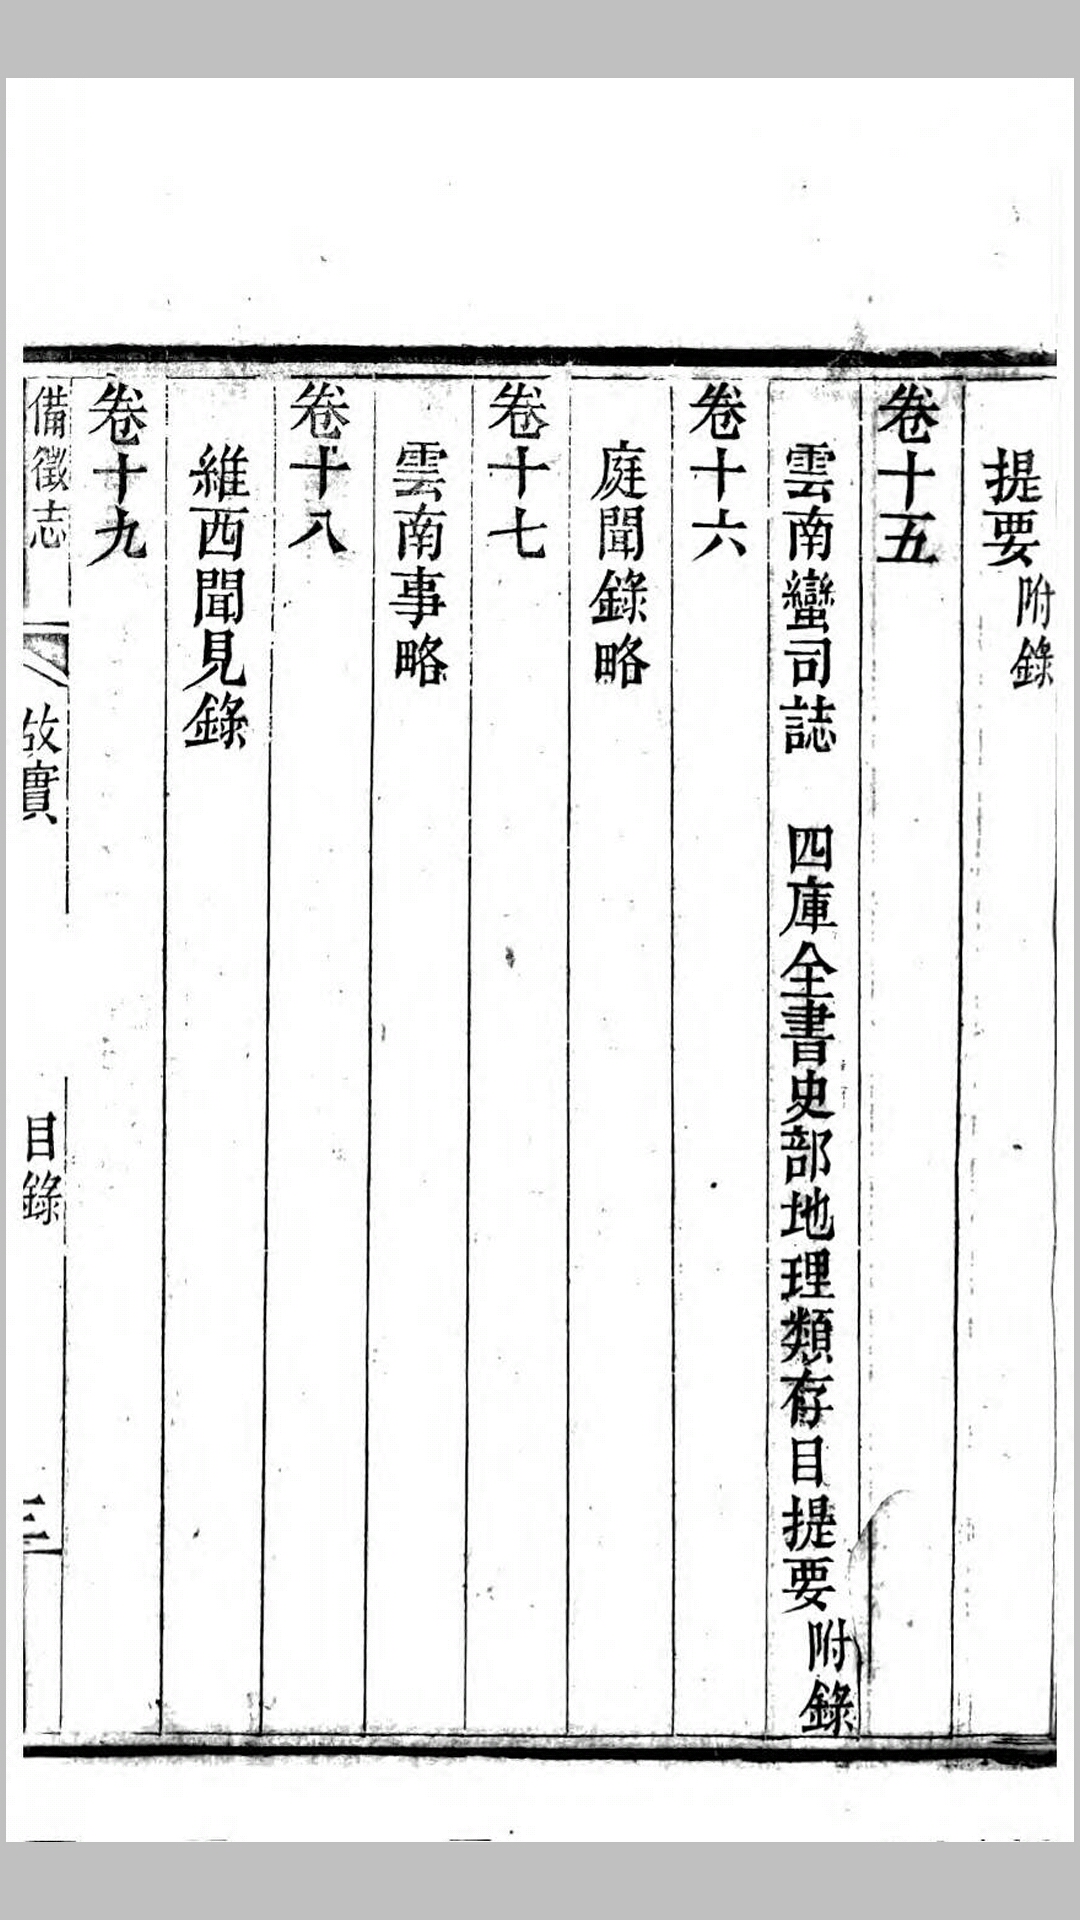 提要附錄
卷十五
雲南蠻司誌　四庫全書史部地理類存目提要附錄
卷十六
庭聞錄略
卷十七
雲南事略
卷十八
維西聞見錄
卷十九
備徵志　故實　目錄　三